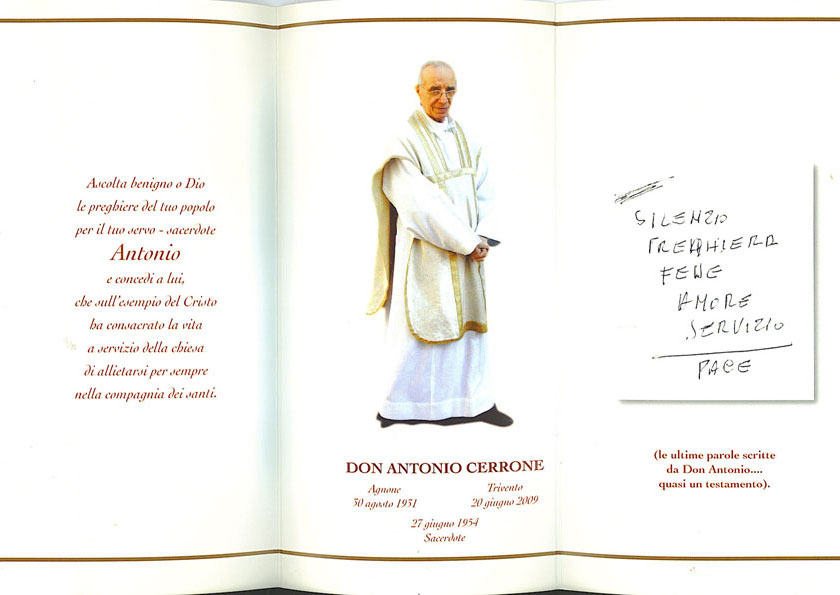 Ascolta benigno o Dio
le preghiere del tuo popolo
per il tuo servo - sacerdote
Antonio
e concedi a lui,
che sull'esempio del Cristo
ha consacrato la vita
a servizio della chiesa
di allietarsi per sempre
nella compagnia dei santi.
DON ANTONIO CERRONE
Agnone
30 agosto 1931
Trivento
20 giugno 2009
27 giugno 1954
Sacerdote
SILENZIO
PREGHIERA
FEDE
AMORE
SERVIZIO
PACE
(le ultime parole scritte
da Don Antonio....
quasi un testamento).